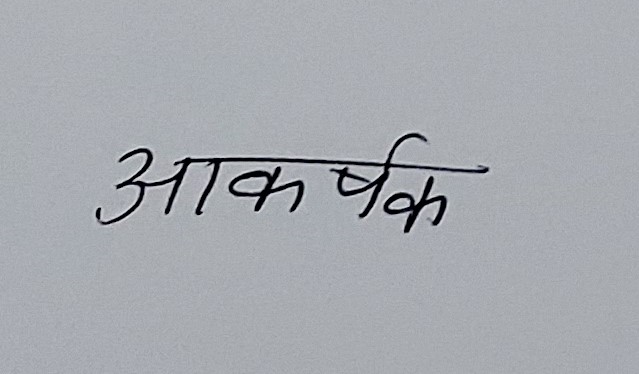 आकर्षक